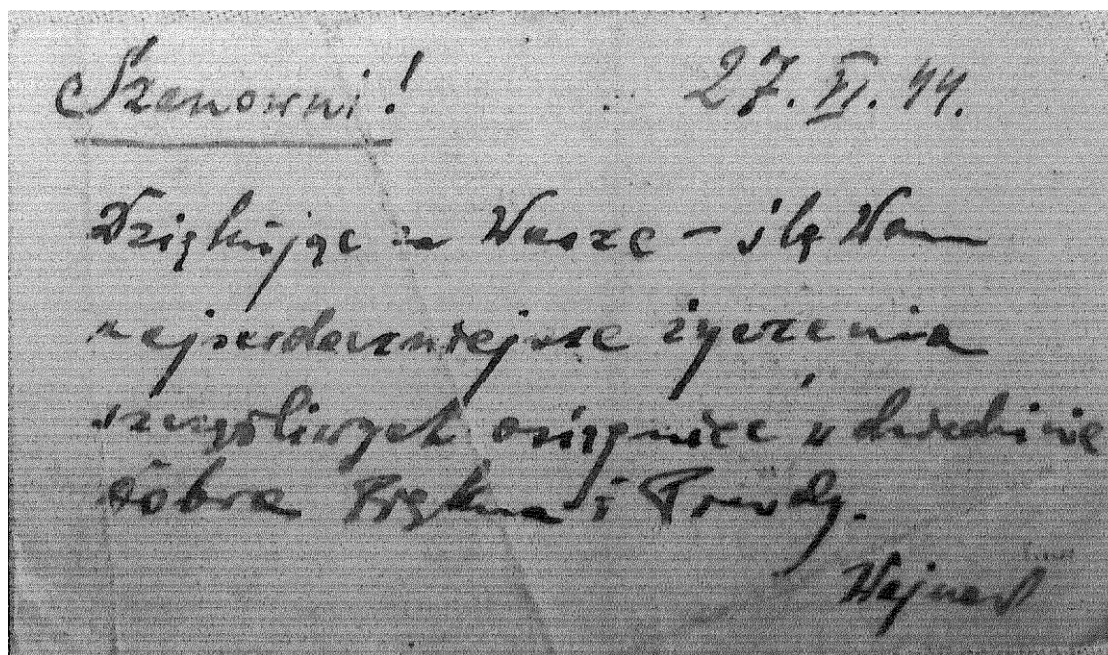 Szanowni! 27. XI. 44.
Dziękując za Wasze – ślę Wam
najserdeczniejsze życzenia
szczęśliwych osiągnięć w dziedzinie
Dobra Piękna i Prawdy.